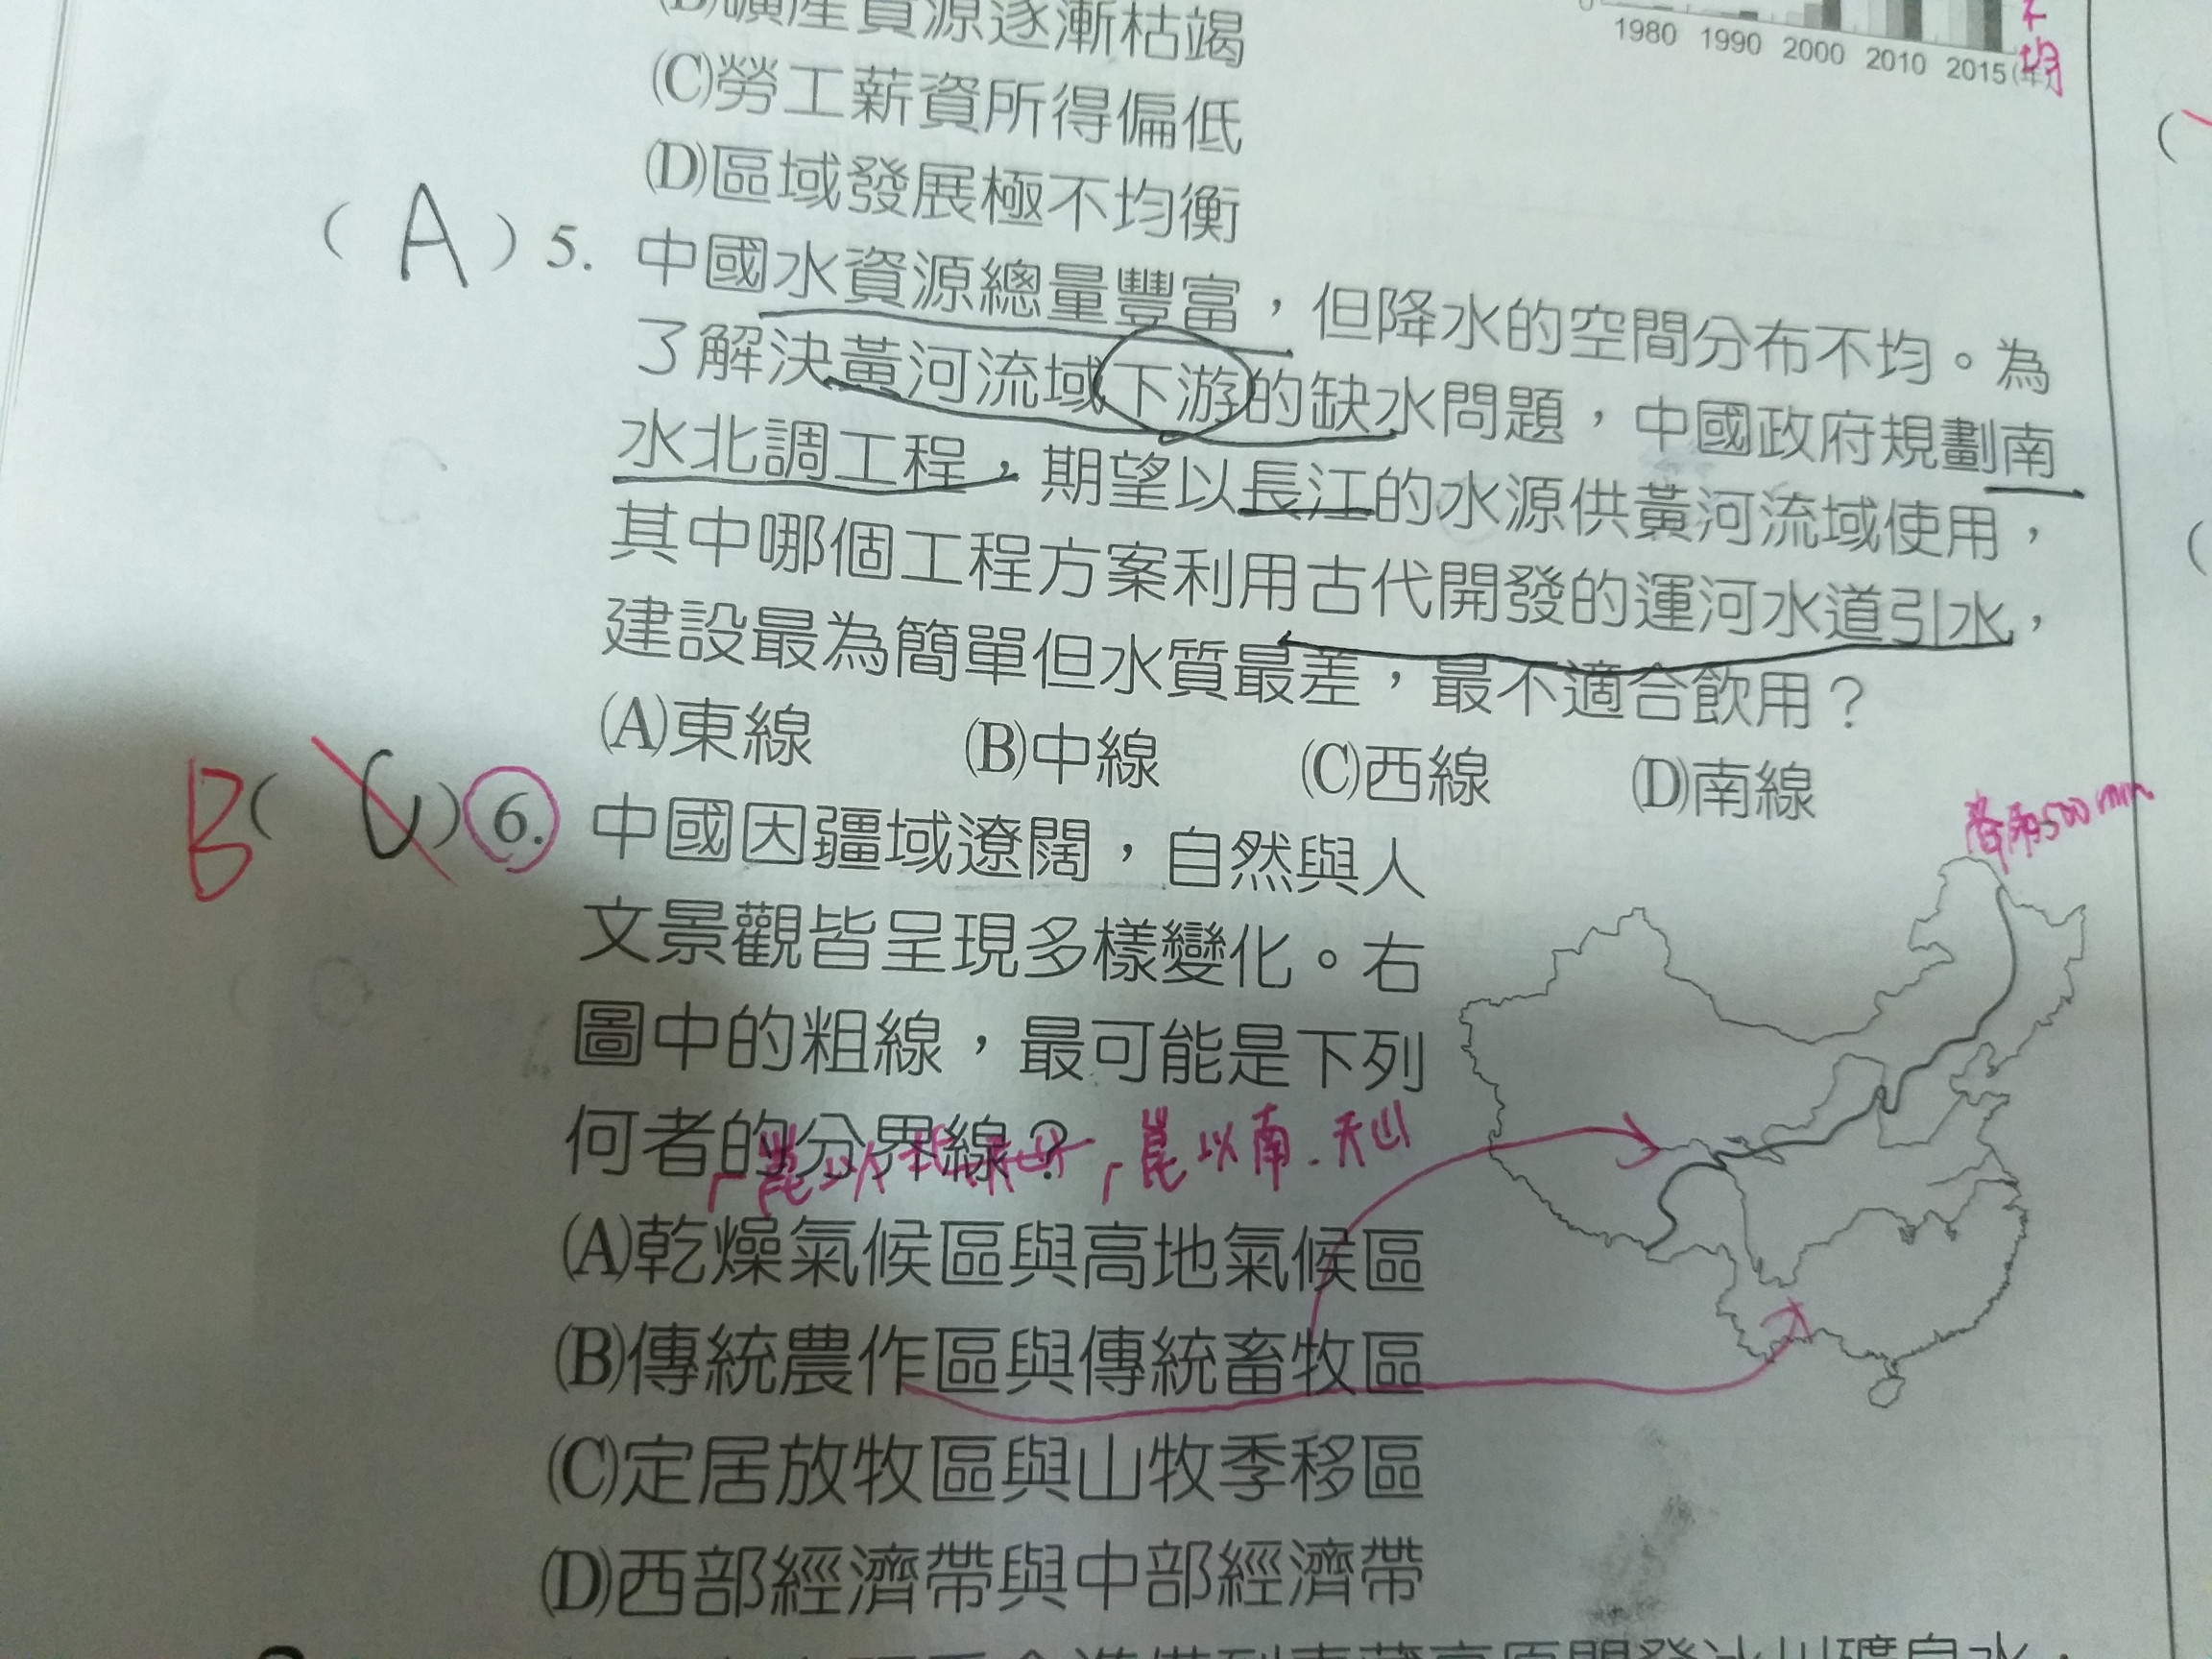 (B)礦產資源逐漸枯竭
1980 1990 2000 2010 2015(年)
不均
(C)勞工薪資所得偏低
(D)區域發展極不均衡
( A ) 5. 中國水資源總量豐富，但降水的空間分布不均。為
了解決黃河流域下游的缺水問題，中國政府規劃南
水北調工程，期望以長江的水源供黃河流域使用，
其中哪個工程方案利用古代開發的運河水道引水，
建設最為簡單但水質最差，最不適合飲用？
(A)東線 (B)中線 (C)西線 (D)南線
B( C ) 6. 中國因疆域遼闊，自然與人
文景觀皆呈現多樣變化。右
圖中的粗線，最可能是下列
何者的分界線？
500mm
崑以南.天山
(A)乾燥氣候區與高地氣候區
(B)傳統農作區與傳統畜牧區
(C)定居放牧區與山牧季移區
(D)西部經濟帶與中部經濟帶